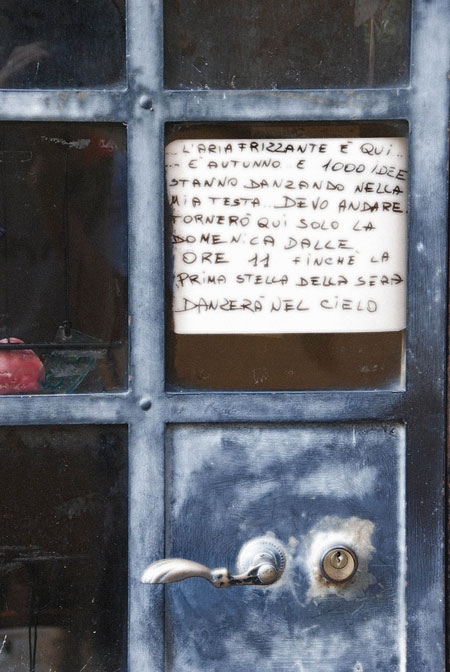 ... L'ARIA FRIZZANTE È QUI...
È AUTUNNO E 1000 IDEE
STANNO DANZANDO NELLA
MIA TESTA. DEVO ANDARE.
TORNERÒ QUI SOLO LA
DOMENICA DALLE
ORE 11 FINCHÈ LA
PRIMA STELLA DELLA SERA
DANZERÀ NEL CIELO